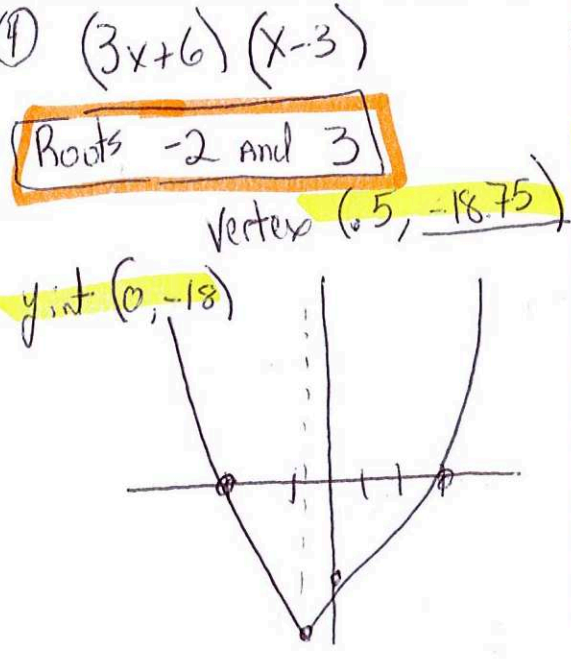 ④ (3x+6) (x-3)
Roots -2 and 3
Vertex (.5, -18.75)
y int (0, -18)